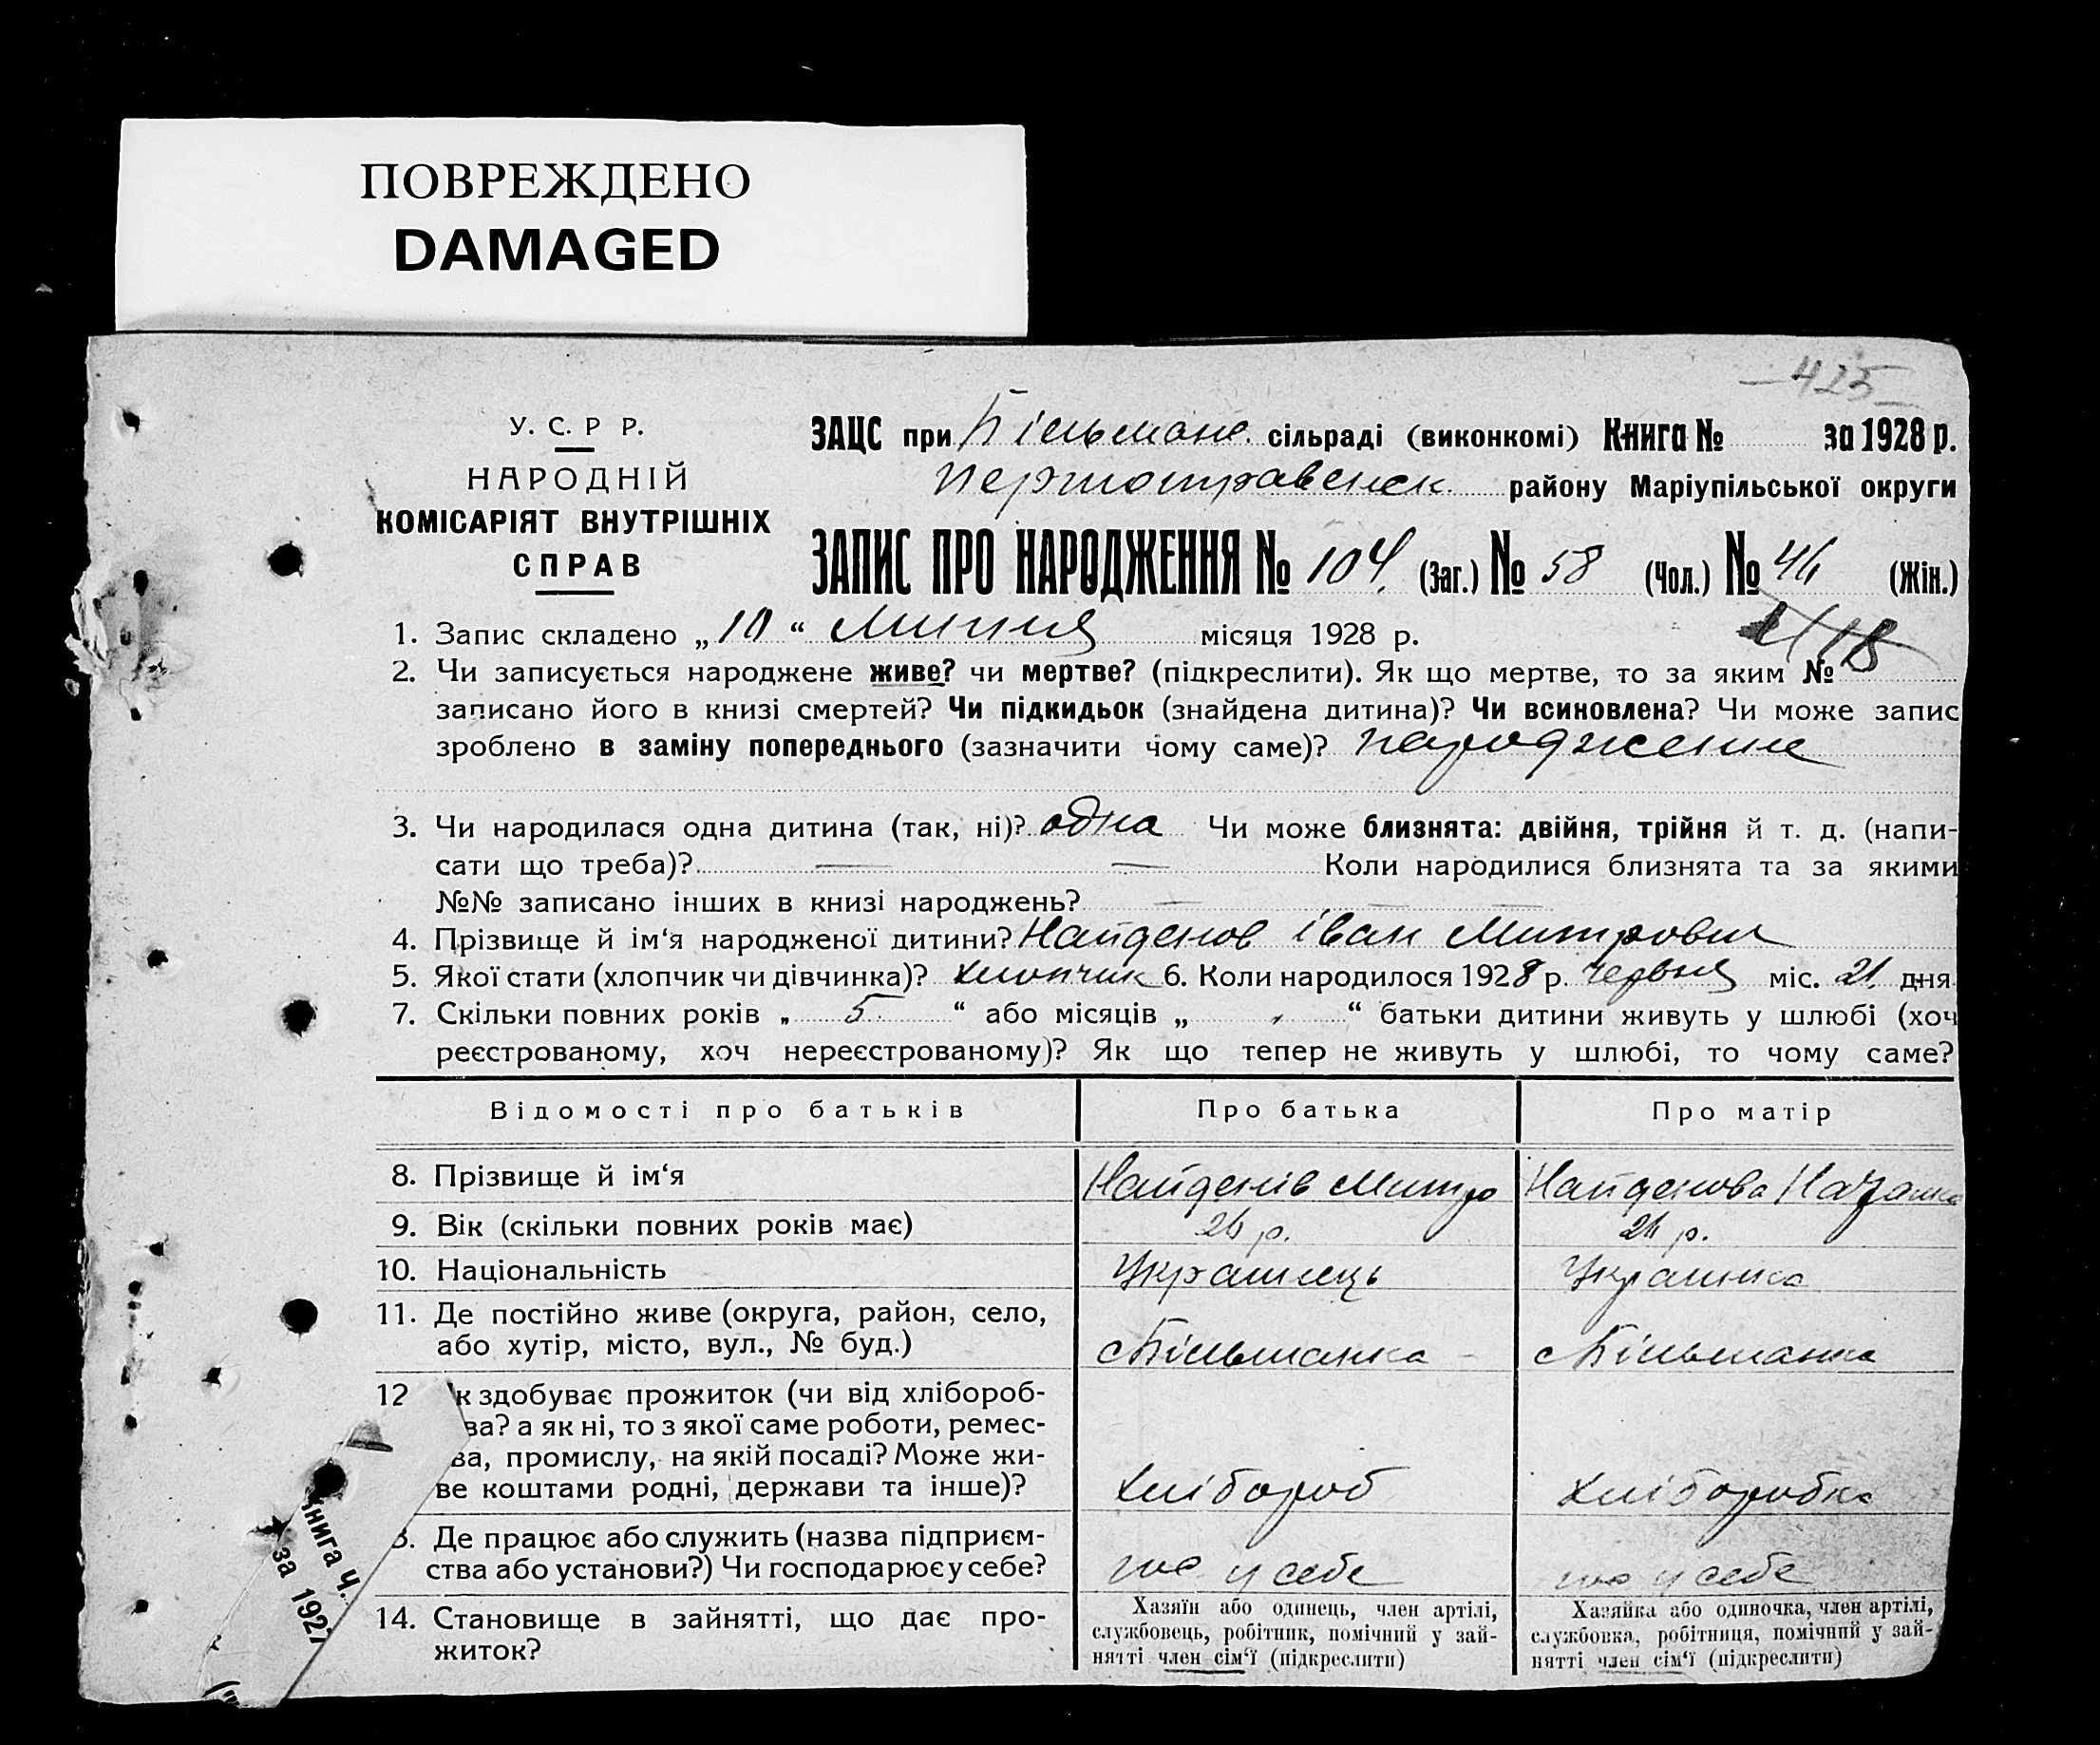 ПОВРЕЖДЕНО
DAMAGED
— 425 —
У. С. Р Р.
НАРОДНІЙ
КОМІСАРІЯТ ВНУТРІШНІХ
СПРАВ
ЗАЦС при Більман. сільраді (виконкомі) Книга № за 1928 р.
Першотравенск. району Маріупільської округи
ЗАПИС ПРО НАРОДЖЕННЯ № 104. (Заг.) № 58 (Чол.) № 46 (Жін.)
1. Запис складено „10“ Липня місяця 1928 р.
2. Чи записується народжене живе? чи мертве? (підкреслити). Як що мертве, то за яким №
записано його в книзі смертей? Чи підкидьок (знайдена дитина)? Чи всиновлена? Чи може запис
зроблено в заміну попереднього (зазначити чому саме)? народження
3. Чи народилася одна дитина (так, ні)? одна Чи може близнята: двійня, трійня й т. д. (напи-
сати що треба)? — — Коли народилися близнята та за якими
№№ записано інших в книзі народжень? — — —
4. Прізвище й ім‘я народженої дитини? Найденов Іван Митрович
5. Якої стати (хлопчик чи дівчинка)? хлопчик 6. Коли народилося 1928 р. червня міс. 21. дня
7. Скільки повних років „ 5 “ або місяців „ “ батьки дитини живуть у шлюбі (хоч
реєстрованому, хоч нереєстрованому)? Як що тепер не живуть у шлюбі, то чому саме?
Відомості про батьків Про батька Про матір
8. Прізвище й ім‘я Найденів Митро Найденова
9. Вік (скільки повних років має) р. р.
10. Національність Українець Українка
11. Де постійно живе (округа, район, село,
або хутір, місто, вул., № буд.) с Більманка с Більманка
12 к здобуває прожиток (чи від хлібороб-
ва? а як ні, то з якої саме роботи, ремес-
ва, промислу, на якій посаді? Може жи-
ве коштами родні, держави та інше)? Хлібороб Хлібородка
3. Де працює або служить (назва підприєм-
ства або установи?) Чи господарює у себе? у себе у себе
14. Становище в зайнятті, що дає про-
житок?
Хазяїн або одинець, член артілі,
службовець, робітник, помічний у зай-
нятті член сім‘ї (підкреслити)
Хазяйка або одиночка, член артілі,
службовка, робітниця, помічний у зай-
нятті член сім‘ї (підкреслити)
Книга Ч.
за 1927